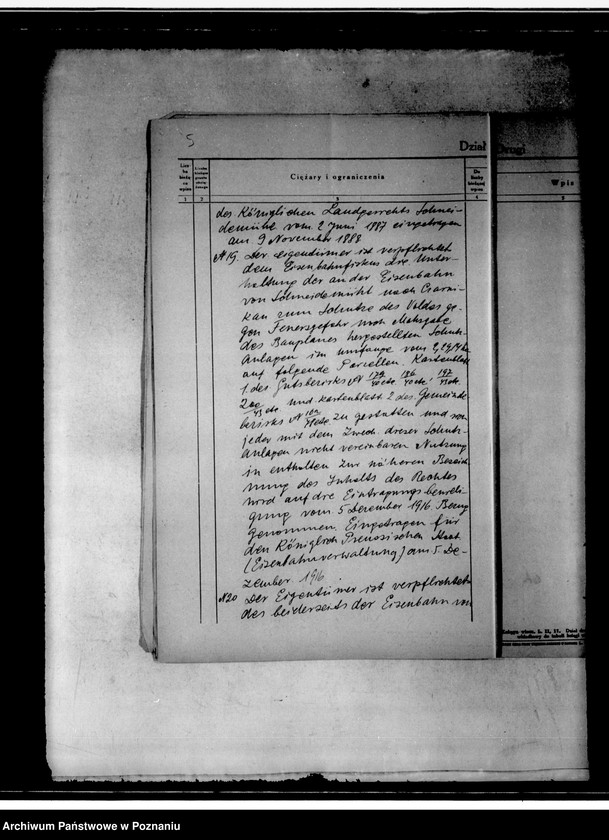 5
Dział Drugi
Ciężary i ograniczenia
Wpis
1 2 3 4
des Königlichen Landgerrchts Schnei-
demühl vom 2 Juni 1887 eingetragen
am 9 November 1888
№ 19. Der eigentümer ist verpflichtet
dem Eisenbahnfiskus die Unter-
haltung der an der Eisenbahn
von Schneidemühl nach Czarni-
kau zum Schutze des Waldes ge-
gen Feuersgefahr nach Massgabe
des Bauplanes hergestellten Schutz-
Anlagen im umfange vom
auf folgende Parcellen. Kartenblatt
1. des Gutsbezirks №
und Kartenblatt 2 des Gemeinde
bezirks № zu gestatten und
jeder mit dem Zweck dieser Schutz-
Anlagen nicht vereinbaren Nutzung
in enthalten Zur näheren Bezeich
nung des Inhalts des Rechtes
wird auf die Eintragungsbewilli-
gung vom 5 Dezember 1916. Bezug
Genommen. Eingetragen für
den Königlich Preussischen Staat
(Eisenbahnverwaltung) am 5. De-
zember 1916
№ 20 Der Eigentümer ist verpflichtet
des beiderseits der Eisenbahn
Archiwum Państwowe w Poznaniu